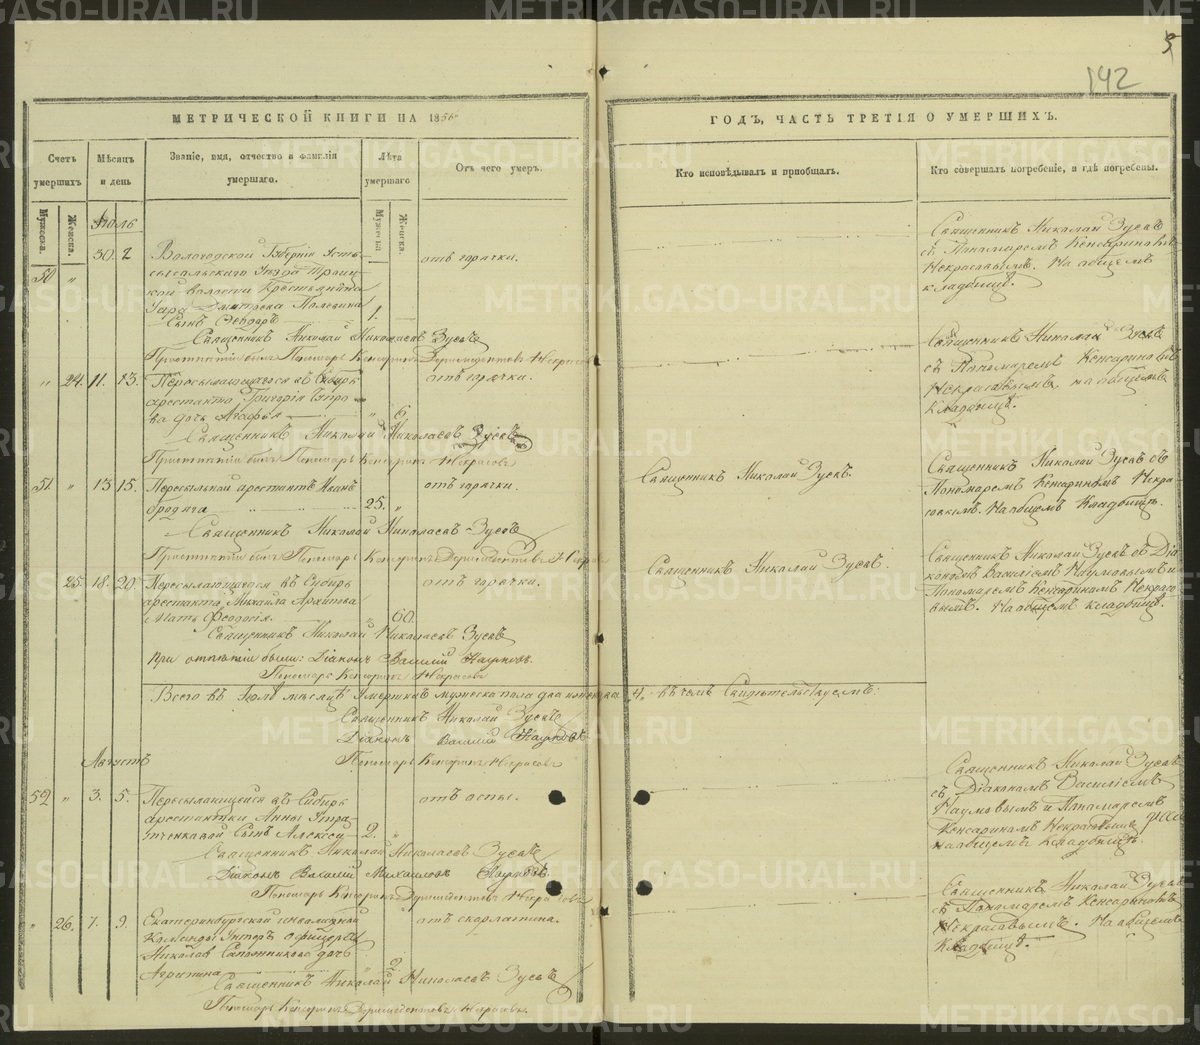 142
МЕТРИЧЕСКОЙ КНИГИ НА 1856
ГОДЪ, ЧАСТЬ ТРЕТІЯ О УМЕРШИХЪ.
Счетъ умершихъ
Мѣсяцъ и день
Званіе, имя, отчество и фамилія умершаго.
Лѣта умершаго
Отъ чего умеръ.
Кто исповѣдывалъ и пріобщалъ.
Кто совершалъ погребеніе, и гдѣ погребены.
Мужеска.
Женска.
Мужеска
Женска.
Іюль
50 " 30. 2
Вологодской Губерніи Усть-
сысольскаго Уѣзда
кой волости Крестьянина
Сынъ Ѳедоръ
1.
отъ горячки.
Священникъ Николай Зуевъ
съ Пономаремъ Кенсариномъ
Некрасовымъ. На общемъ
кладбищѣ.
Священникъ Николай Николаевъ Зуевъ
При отпѣтіи былъ Пономарь Кенсаринъ Дормедонтовъ Некрасовъ
" 24. 11. 13.
Пересылающагося въ Сибирь
арестанта Григорія
ва дочь Агафья
" 6
отъ горячки.
Священникъ Николай Зуевъ
съ Пономаремъ Кенсариномъ
Некрасовымъ. на общемъ
кладбищѣ.
Священникъ Николай Николаевъ Зуевъ
При отпѣтіи былъ Пономарь Кенсаринъ Некрасовъ
51. " 13 15.
Пересыльной арестантъ Иванъ
бродяга
25. "
отъ горячки.
Священникъ Николай Зуевъ.
Священникъ Николай Зуевъ съ
Пономаремъ Кенсариномъ Некра-
совымъ. На общемъ кладбищѣ.
Священникъ Николай Николаевъ Зуевъ
При отпѣтіи былъ Пономарь Кенсаринъ Дормедонтовъ Некрасовъ
25. 18. 20.
Пересылающагося въ Сибирь
арестанта Михаила Архипова
Мать Ѳеодосія.
" 60.
отъ горячки.
Священникъ Николай Зуевъ.
Священникъ Николай Зуевъ съ Діа-
кономъ Василіемъ Наумовымъ и
Пономаремъ Кенсариномъ Некрасо-
вымъ. На общемъ кладбищѣ.
Священникъ Николай Николаевъ Зуевъ
При отпѣтіи были: Діаконъ Василій Наумовъ.
Пономарь Кенсаринъ Некрасовъ
Всего въ Іюлѣ мѣсяцѣ умершихъ мужеска пола два женска 4. въ чемъ Свидѣтельствуемъ:
Священникъ Николай Зуевъ
Діаконъ Василій Наумовъ
Пономарь Кенсаринъ Некрасовъ
Августъ
52 " 3. 5.
Пересылающейся въ Сибирь
арестантки Анны
Сынъ Алексѣй
2. "
отъ оспы.
Священникъ Николай Зуевъ
съ Діакономъ Василіемъ
Наумовымъ и Пономаремъ
Кенсариномъ Некрасовымъ
на общемъ кладбищѣ.
Священникъ Николай Николаевъ Зуевъ
Діаконъ Василій Михайловъ Наумовъ
Пономарь Кенсаринъ Дормедонтовъ Некрасовъ
" 26. 7. 9.
Екатеринбургской инвалидной
Команды Унтеръ офицера
Николая Сапожникова дочь
Агрипина
" 2
отъ скарлатина.
Священникъ Николай Зуевъ
съ Пономаремъ Кенсариномъ
Некрасовымъ. На общемъ
кладбищѣ.
Священникъ Николай Николаевъ Зуевъ
Пономарь Кенсаринъ Дормедонтовъ Некрасовъ.
METRIKI.GASO-URAL.RU